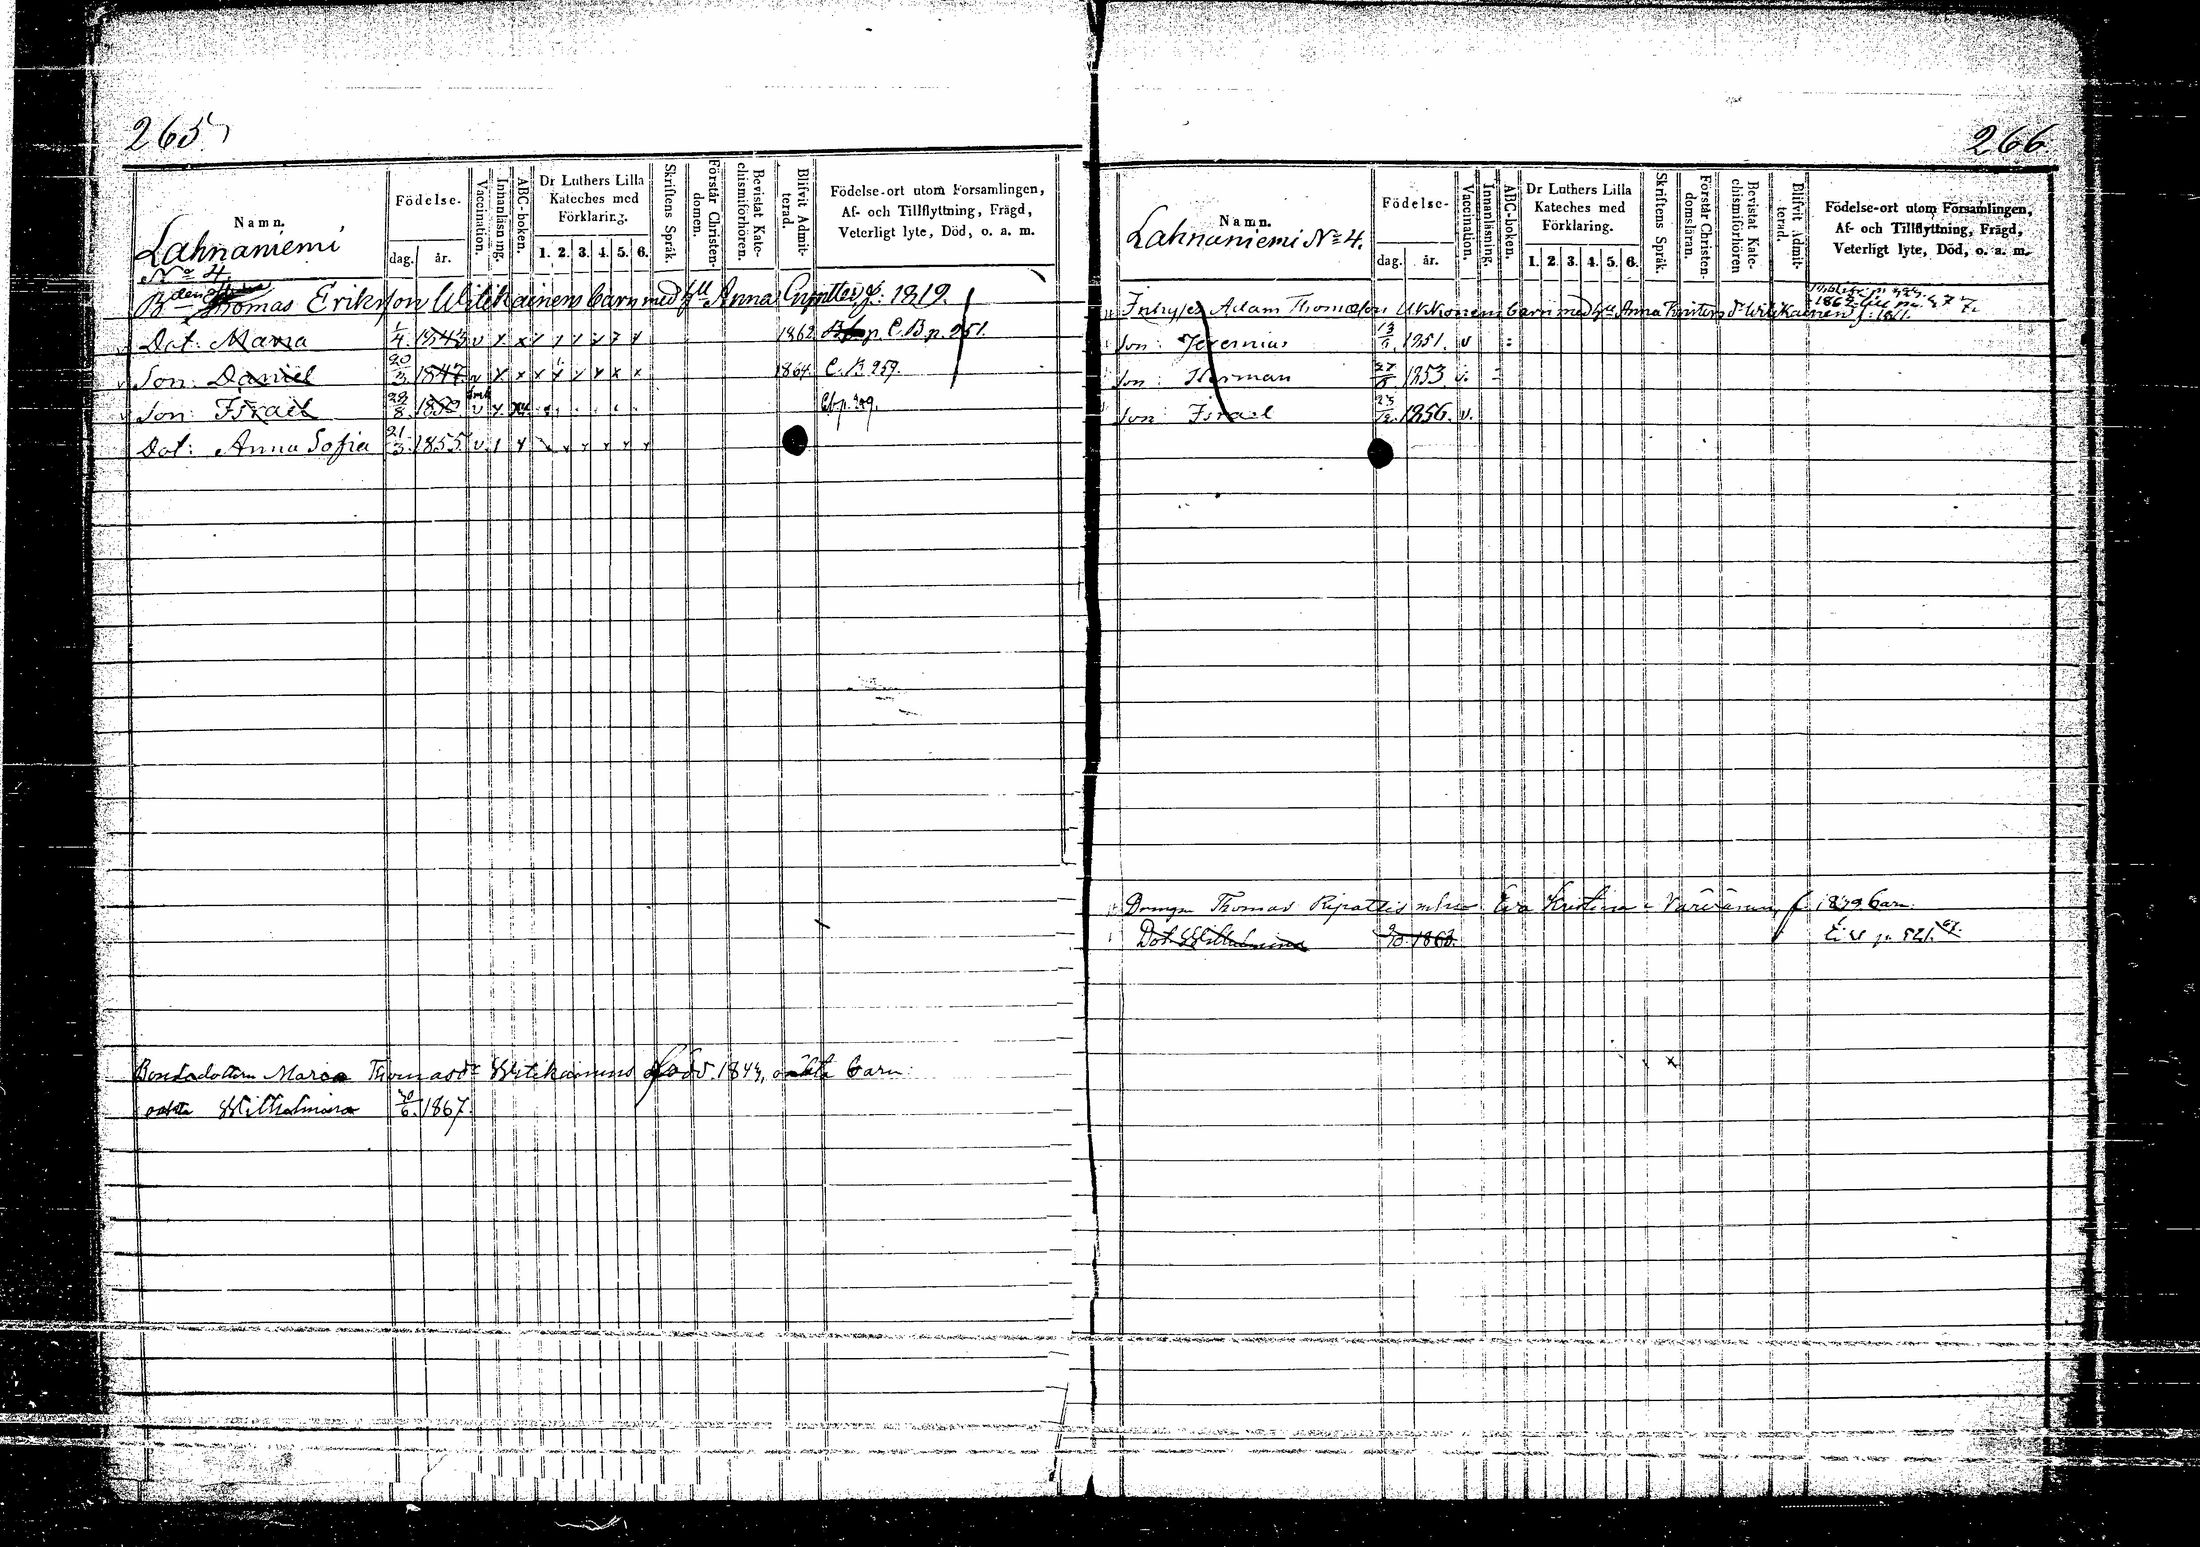 265
Namn.
Födelse-
dag. år.
Vaccination.
Innanläsning.
ABC-boken.
Dr Luthers Lilla
Kateches med
Förklaring.
1. 2. 3. 4. 5. 6.
Skriftens Språk.
Förstår Christen-
domen.
Bevistat Kate-
chismiförhören.
Blifvit Admit-
terad.
Födelse-ort utom Forsamlingen,
Af- och Tillflyttning, Frägd,
Veterligt lyte, Död, o. a. m.
Lahnaniemi
No 4.
Thomas Eriksson Witikainens barn med hu Anna f. 1819.
Dot: Maria 1/4. 1843 v 1862 C.B.p. 251.
Son: Daniel 20/3 1847. v 1864 C.B. 259.
Son: Israel 29/8 1850 v
Dot: Anna Sofia 21/3. 1855. v.
Bondadottern Maria Thomasdr Witikainens född. 1843, oäkta barn:
oäkta Wilhelmina 30/6. 1867.
266
Namn.
Födelse-
dag. år.
Vaccination.
Innanläsning.
ABC-boken.
Dr Luthers Lilla
Kateches med
Förklaring.
1. 2. 3. 4. 5. 6.
Skriftens Språk.
Förstår Christen-
domsläran.
Bevistat Kate-
chismiförhören
Blifvit Admit-
terad.
Födelse-ort utom Församlingen,
Af- och Tillflyttning, Frägd,
Veterligt lyte, Död, o. a. m.
Lahnaniemi No 4.
Inhyses Adam Thomasson barn med hu Anna Witikainen
Son: Jeremias 1851. v
Son: Herman 1853 v.
Son: Israel 1856. v.
Drengen Thomas Ripattis m hu Eva Kristina f 1839 barn.
Dot. Wilhelmina 1863. p. 521.